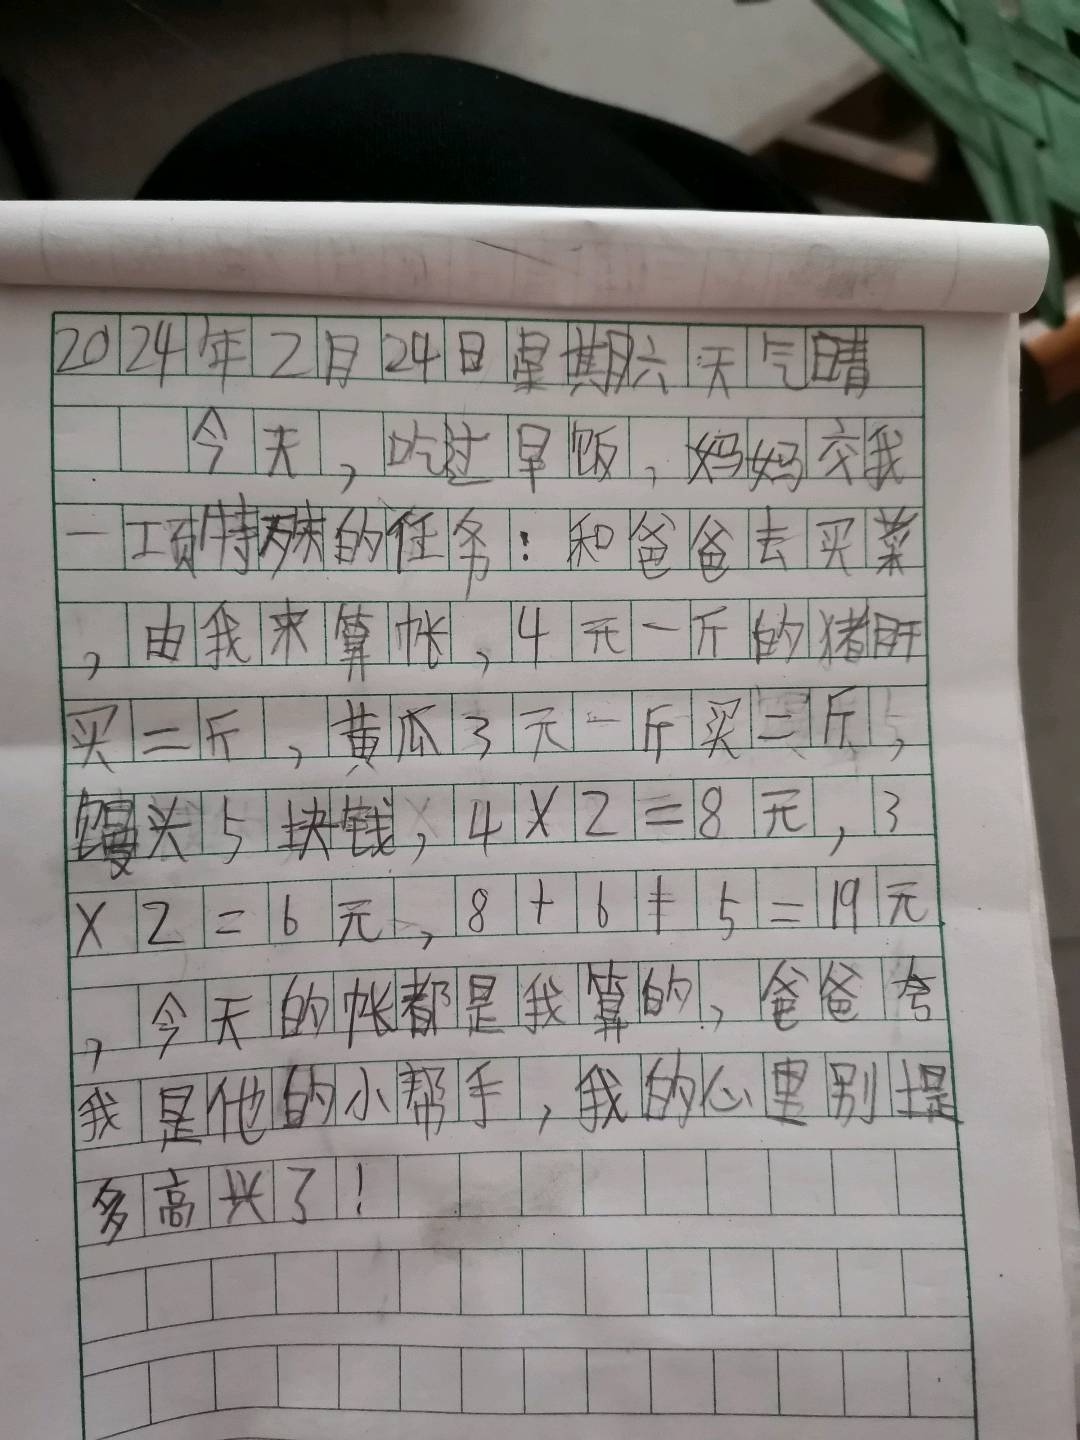 2024年2月24日星期六天气晴
今天,吃过早饭,妈妈交我
一项特殊的任务:和爸爸去买菜
,由我来算帐,4元一斤的猪肝
买二斤,黄瓜3元一斤买二斤,
馒头5块钱,4X2=8元,3
X2=6元,8+6+5=19元
,今天的帐都是我算的,爸爸夸
我是他的小帮手,我的心里别堤
多高兴了!